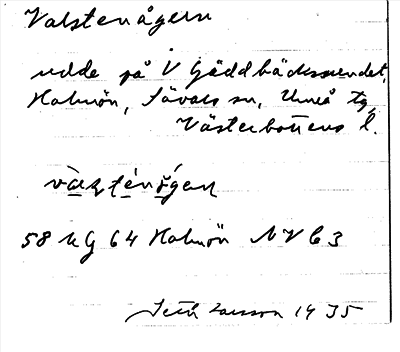 Valstenågern
udde på V Gäddbäckssundet,
Holmön, Sävars sn, Umeå tg,
Västerbottens l.
58 UG 64 Holmön NV C3
Seth Larsson 1935